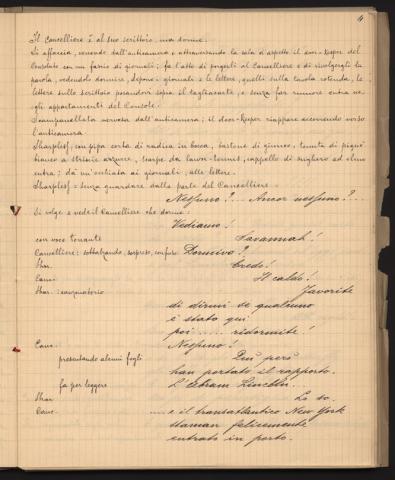 4
Il Cancelliere è al suo scrittoio, ma dorme.
Si affaccia, venendo dall'anticamera e attraversando la sala d'aspetto il door-keeper del
Consolato con un fascio di giornali; fa l'atto di porgerli al Cancelliere e di rivolgergli la
parola, vedendolo dormire, depone i giornali e le lettere, quelli sulla tavola rotonda, le
lettere sullo scrittoio posandovi sopra il tagliacarte, e senza far rumore entra ne-
gli appartamenti del Console.
Scampanellata nervosa dall'anticamera; il door-keeper riappare accorrendo verso
l'anticamera.
Sharpless, con pipa corta di radica in bocca, bastone di giunco, tenuta di piqué
bianco a striscie azzurre, scarpe da lawn-tennis, cappello di sughero ad elmo
entra; dà un'occhiata ai giornali, alle lettere.
Sharpless = senza guardare dalla parte del Cancelliere =
Nessuno?... Ancor nessuno?...
Si volge e vede il Cancelliere che dorme:
Vediamo!
con voce tonante Savannah!
Cancelliere: sobbalzando, sorpreso, confuso Dormivo?
Shar. Credo!
Canc. Il caldo!
Shar. Favorite
di dirmi se qualcuno
è stato qui
poi..... ridormite!
Canc. Nessuno!
presentando alcuni fogli Più però
han portato il rapporto.
fa per leggere L'Abram Lincoln...
Shar. Lo so.
Canc. .... e il transatlantico New York
staman felicemente
entrato in porto.